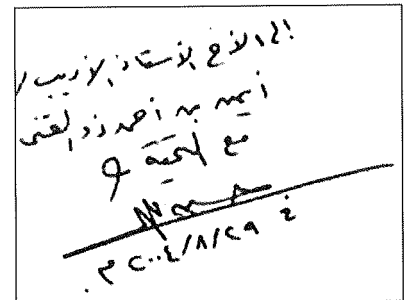 إلى الأخ الأستاذ الأديب /
أيمن بن أحمد ذو الغنى
مع التحية و
في ٢٩/٨/٢٠٠٤ م.